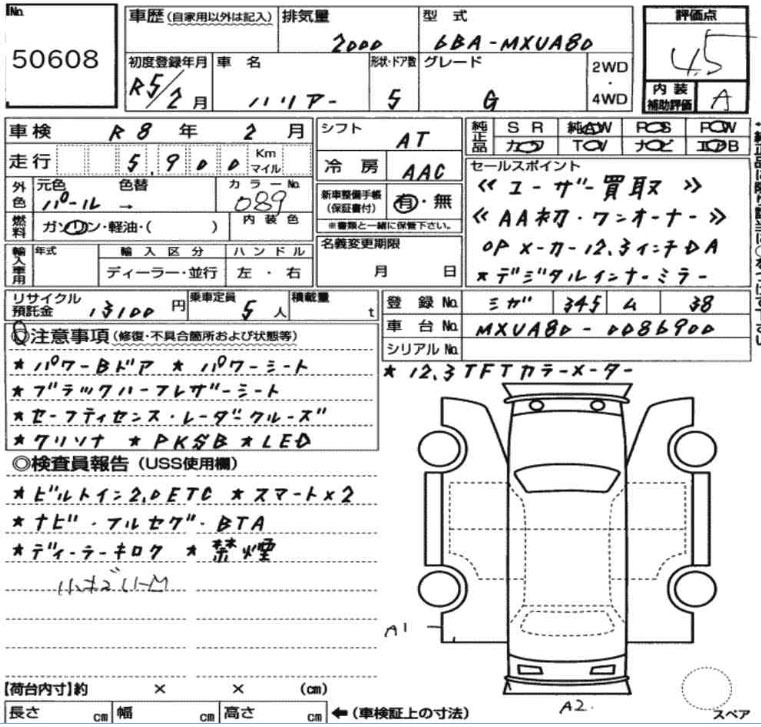 No. 50608
車歴(自家用以外は記入) 排気量 2000 型式 6BA-MXUA80 評価点 4.5
初度登録年月 R5/2月 車名 ハリアー 形状・ドア数 5 グレード G 2WD・4WD 内装補助評価 A
車検 R8年 2月 シフト AT 純正品 SR 純AW PS PW
カワ TV ナビ エアB
走行 5,900 Km マイル 冷房 AAC セールスポイント
外色 元色 パール 色替 → カラーNo. 089 新車整備手帳(保証書付) 有・無 ≪ユーザー買取≫
燃料 ガソリン・軽油・( ) 内装色 ※書類と一緒に保管下さい。 ≪AA初・ワンオーナー≫
輸入車用 年式 輸入区分 ハンドル 名義変更期限 OPメーカー12.3インチDA
ディーラー・並行 左・右 月 日 ★デジタルインナーミラー
リサイクル預託金 13100円 乗車定員 5人 積載量 t 登録No. ミカ゛ 345 ム 38
車台No. MXUA80-0086900
◎注意事項(修復・不具合箇所および状態等) シリアルNo.
★パワーBドア ★パワーシート ★12.3TFTカラーメーター
★ブラックハーフレザーシート
★セーフティセンス・レーダークルーズ
★クリソナ ★PKSB ★LED
◎検査員報告(USS使用欄)
★ビルトイン2.0ETC ★スマート×2
★ナビ・フルセグ・BTA
★ディーラーキロク ★禁煙
A1
【荷台内寸】約 × × (cm)
長さ cm 幅 cm 高さ cm ←(車検証上の寸法) A2 スペア